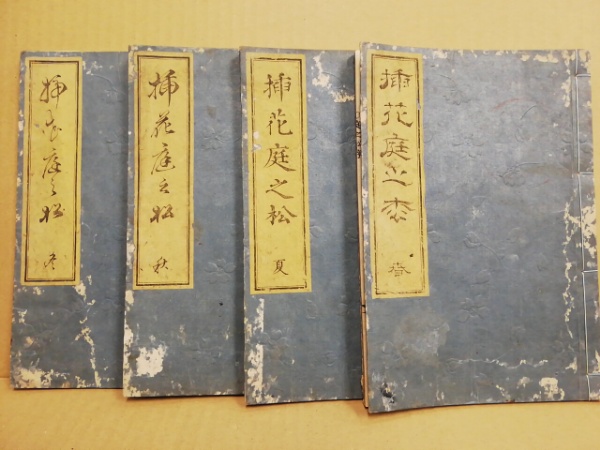 挿花庭之松
春
挿花庭之松
夏
挿花庭之松
秋
挿花庭之松
冬